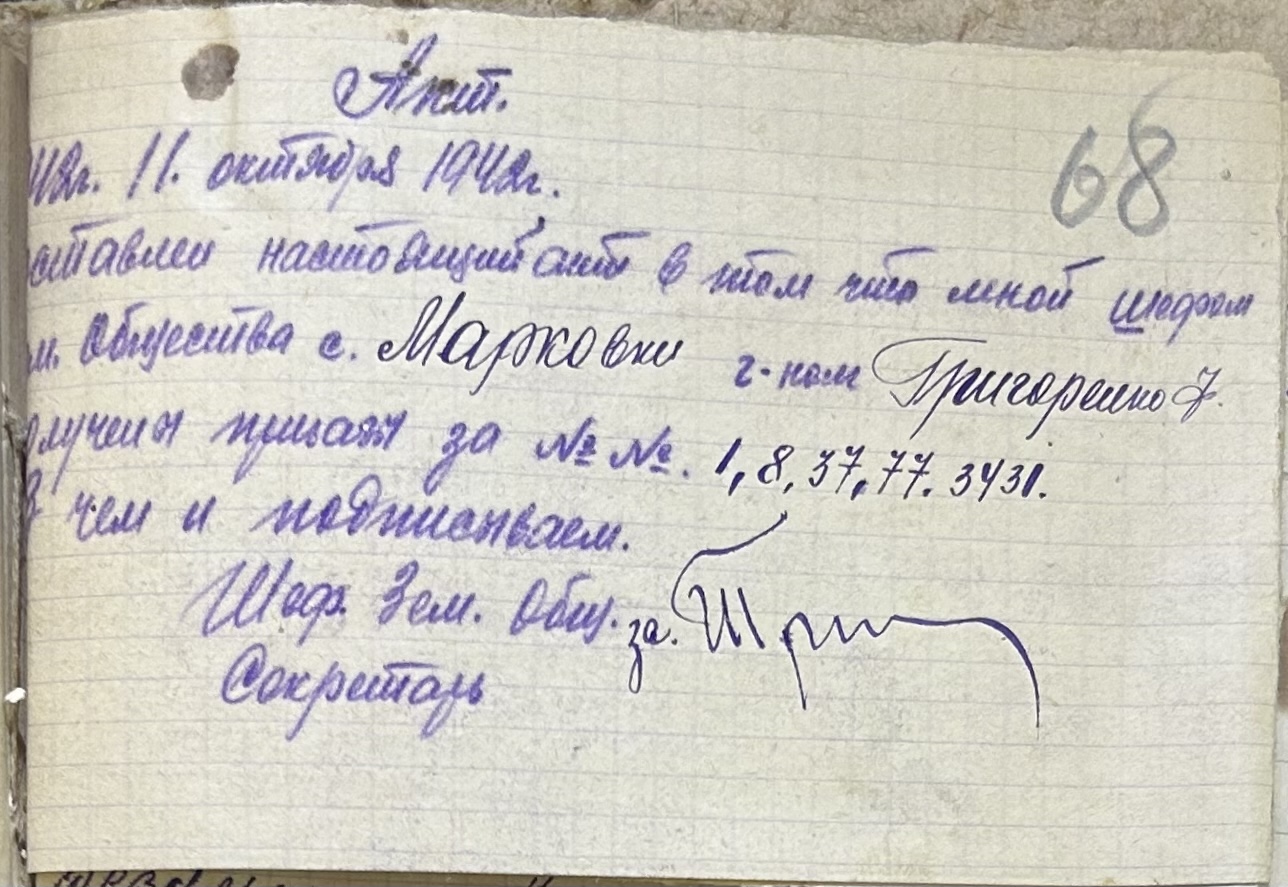 Акт.
68
42г. 11. октября 1942г.
ставлен настоящий акт в том что мной шефом
м. Общества с. Марковки г-ном Григоренко
олучены приказы за №№. 1, 8, 37, 77. 3431.
В чем и подписываем.
Шеф. Зем. Общ. за.
Секретарь